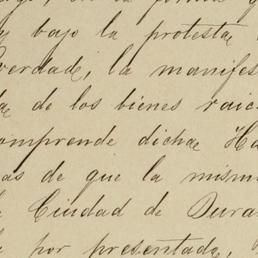 y bajo la protesta
verdade, la manifes
de los bienes raic
omprende dicha Ha
as de que la mism
Ciudad de Dura
por presentada,